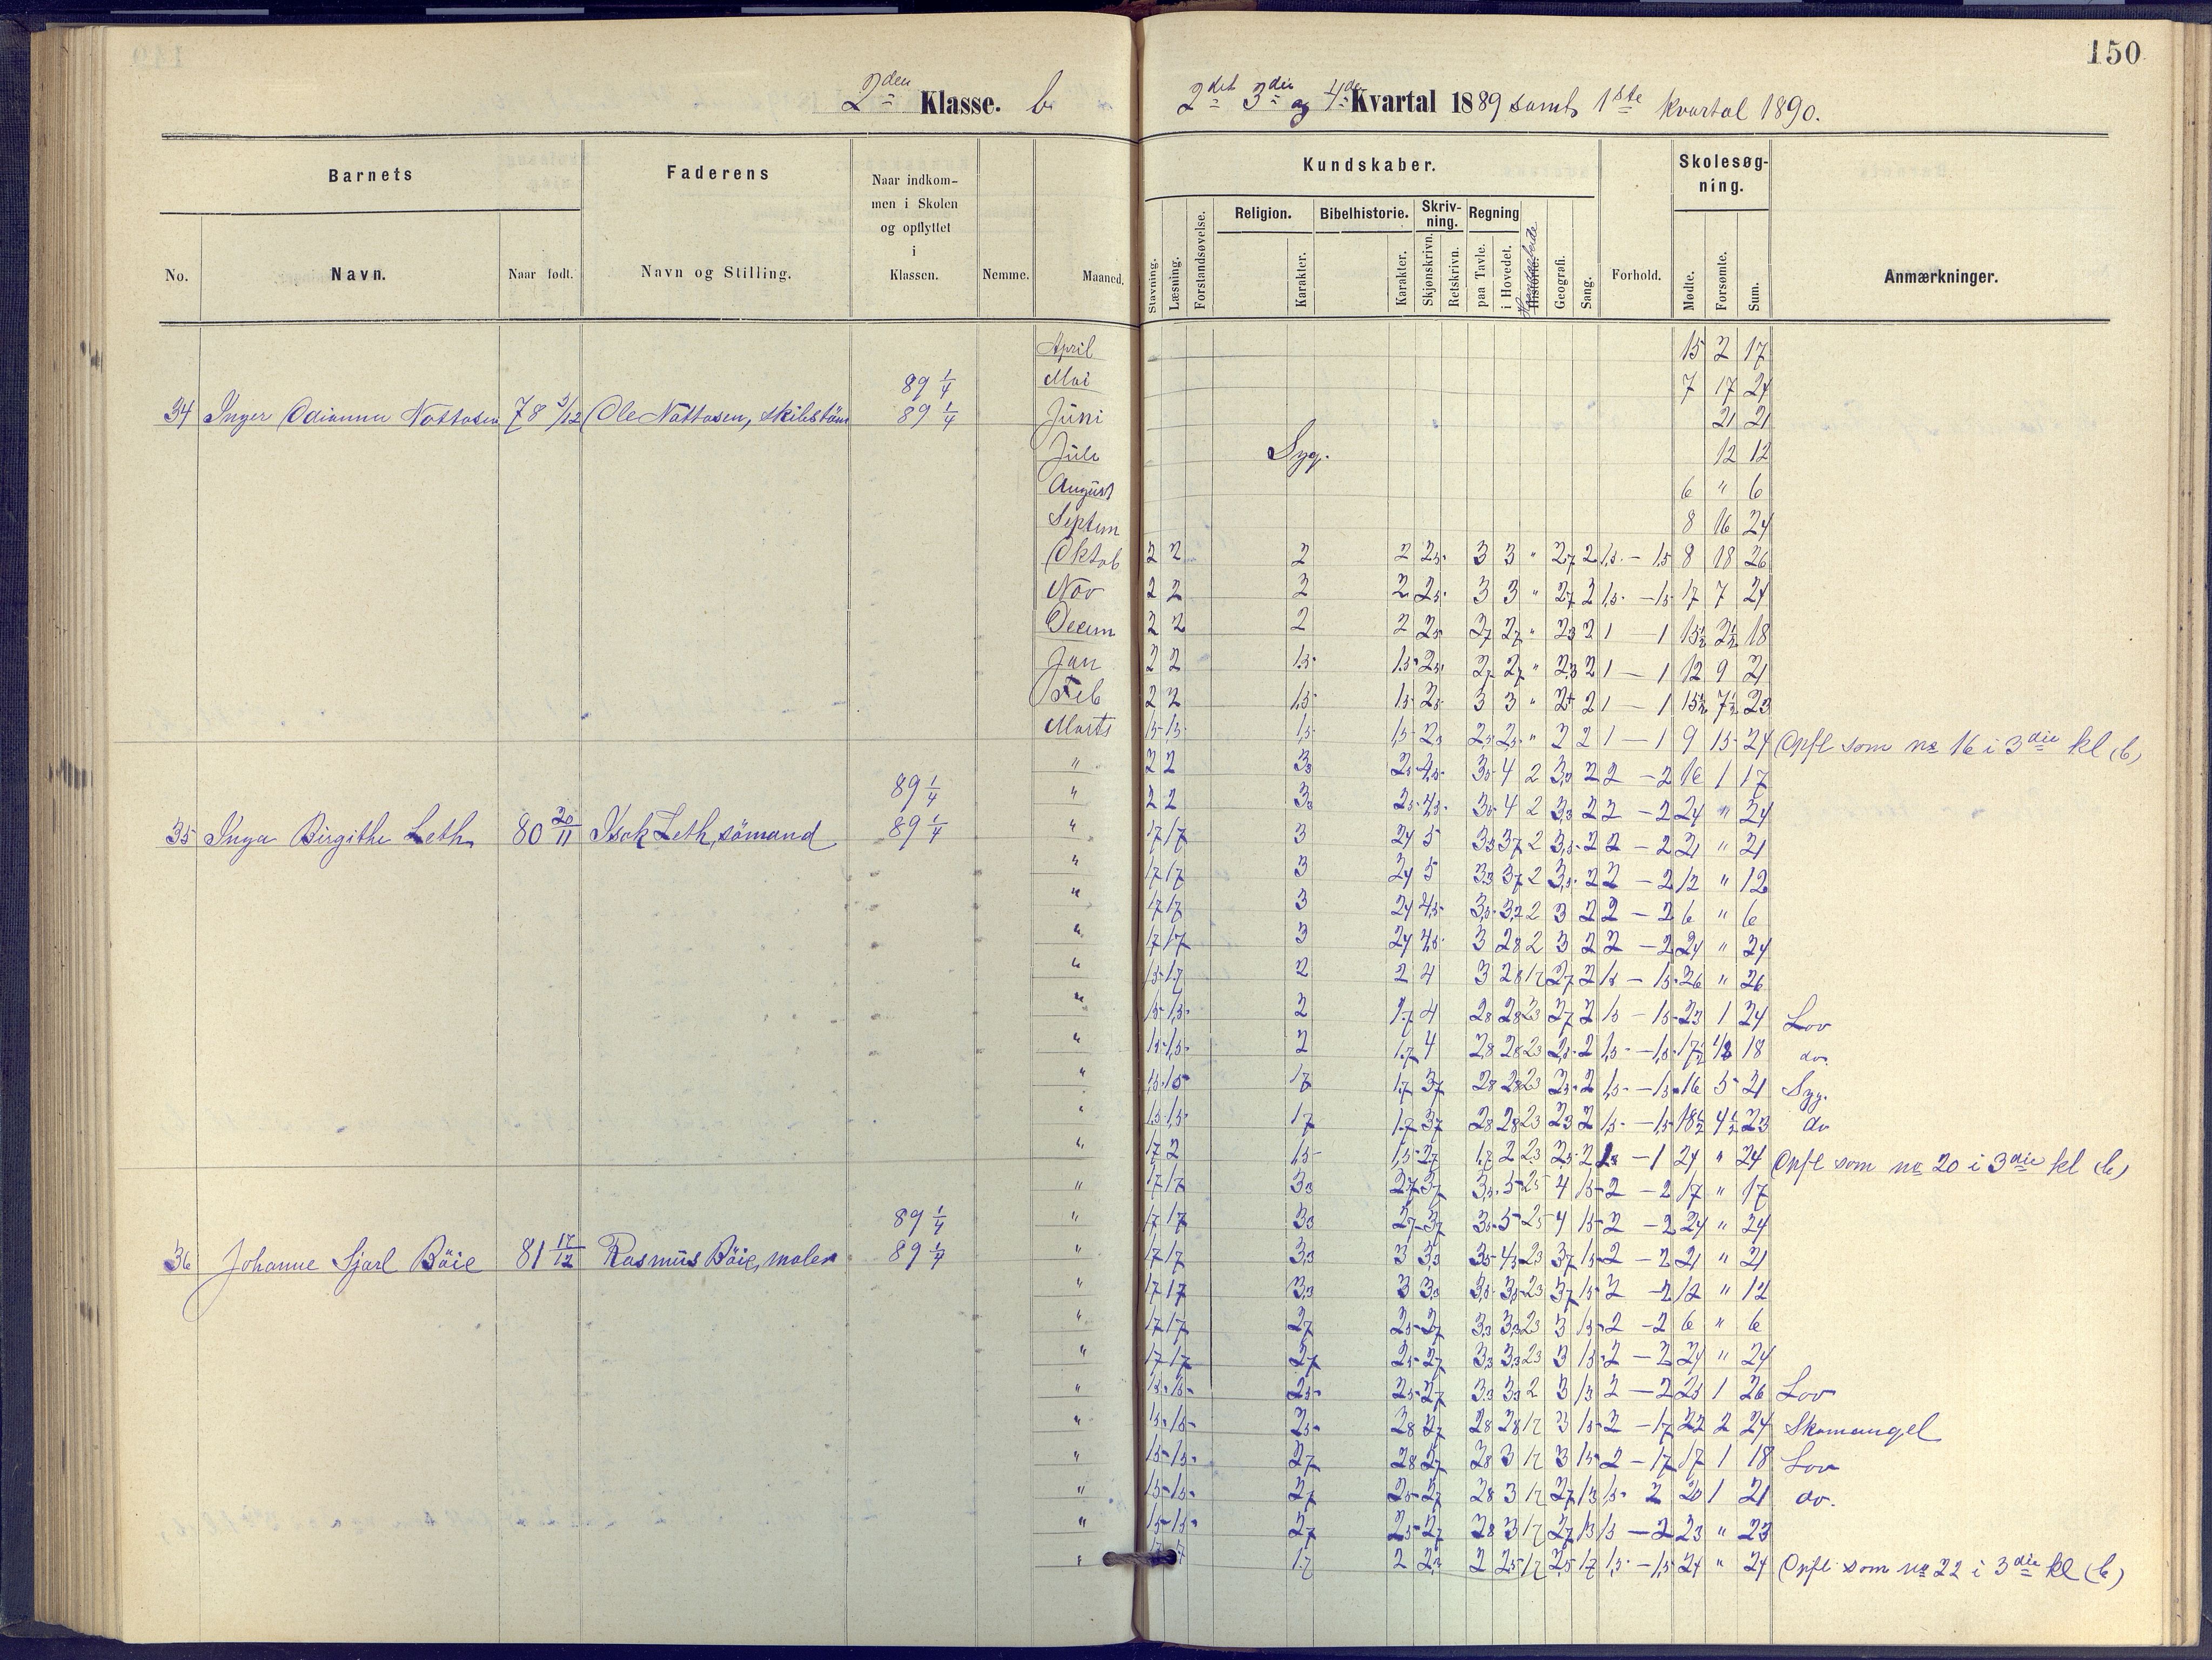 150
2den Klasse. b
2det 3die og 4de Kvartal 1889 samt 1ste kvartal 1890.
Barnets
Faderens
Naar indkom-
men i Skolen
og opflyttet
i
Klassen.
No.
Navn.
Naar født.
Navn og Stilling.
Nemme.
Maaned.
Kundskaber.
Stavning.
Læsning.
Forstandsøvelse.
Religion.
Karakter.
Bibelhistorie.
Karakter.
Skriv-
ning.
Skjønskrivn.
Retskrivn.
Regning
paa Tavle.
i Hovedet.
Historie.
Geografi.
Sang.
Forhold.
Skolesøg-
ning.
Mødte.
Forsømte.
Sum.
Anmærkninger.
April 15 2 17
89 1/4 Mai 7 17 24
34 78 Ole Nattosen, 89 1/4 Juni 21 21
Juli Syg. 12 12
August 6 " 6
Septem 8 16 24
Oktob 2 2 2 2 2,5 3 3 " 2,7 2 1,5 - 1,5 8 18 26
Nov 2 2 2 2 2,5 3 3 " 2,7 2 1,5 - 1,5 17 7 24
Decem 2 2 2 2 2,5 2,7 2,7 " 2,3 2 1 - 1 15½ 2½ 18
Jan 2 2 1,5 1,5 2,5 2,7 2,7 " 2,3 2 1 - 1 12 9 21
Feb 2 2 1,5 1,5 2,5 3 3 " 2 1 - 1 15½ 7½ 23
Marts 1,5 1,5 1,5 1,5 2,5 2,5 " 2 2 1 - 1 9 15 24 Opfl som no 16 i 3die kl (b)
" 2 2 4 2 2 2 - 2 16 1 17
89 1/4 " 2 2 4 2 2 2 - 2 24 " 24
35 Inga Birgithe Leth 80 20/11 Isak Leth, sömand 89 1/4 " 1,7 1,7 3 2,4 5 3,3 3,7 2 3,5 2 2 - 2 21 " 21
" 1,7 1,7 3 2,4 5 3,3 3,7 2 3,5 2 2 - 2 12 " 12
" 1,7 1,7 3 2,4 4,5 3,2 2 3 2 2 - 2 6 " 6
" 1,7 1,7 3 2,4 4,5 3 2,8 2 3 2 2 - 2 24 " 24
" 1,5 1,7 2 2 4 3 2,8 1,7 2,7 2 1,5 - 1,5 26 " 26
" 1,5 1,5 2 1,7 4 2,8 2,8 2,3 2,7 2 1,5 - 1,5 23 1 24 Lov
" 1,5 1,5 2 1,7 4 2,8 2,8 2,3 2,5 2 1,5 - 1,5 17½ ½ 18 do.
" 1,5 1,5 1,7 1,7 3,7 2,8 2,8 2,3 2 1,5 - 1,5 16 5 21 Syg.
" 1,5 1,5 1,7 1,7 3,7 2,8 2,8 2,3 2,3 2 1,5 - 1,5 18½ 4½ 23 do
" 1,7 2 1,5 1,5 2,7 1,7 2 2,3 2,5 2 - 1 24 " 24 Opfl som no 20 i 3die kl (b)
" 1,7 1,7 3,3 2,7 3,7 3,5 5 2,5 4 1,5 2 - 2 17 " 17
89 1/4 " 1,7 1,7 3,3 2,7 3,7 3,5 5 2,5 4 1,5 2 - 2 24 " 24
36 Johanne Böie 81 17/12 Rasmus Böie, maler 89 1/4 " 1,7 1,7 3,3 3 3,3 3,5 4,5 2,3 3,7 1,5 2 - 2 21 " 21
" 1,7 1,7 3,3 3 3,3 3,5 2,3 3,7 1,5 2 - 2 12 " 12
" 1,7 1,7 2,7 2,5 2,7 3,3 3,3 2,3 3 1,5 2 - 2 6 " 6
" 1,7 1,7 2,7 2,5 2,7 3,3 3,3 2,3 3 1,5 2 - 2 24 " 24
" 1,5 1,5 2,5 2,5 2,7 3,3 3,3 2 3 1,5 2 - 2 25 1 26 Lov
" 1,5 1,5 2,5 2,8 2,7 2,8 2,8 1,7 3 1,5 2 - 1,7 22 2 24 Skomangel
" 1,5 1,5 2,7 2,8 2,7 2,8 3 1,7 3 1,5 2 - 1,7 17 1 18 Lov
" 1,5 1,5 2,7 2,5 2,7 2,8 3 1,7 2,7 1,5 1,5 2 20 1 21 do.
" 1,5 1,5 2,7 2,5 2,7 2,8 3 1,7 2,7 1,5 1,5 - 2 23 " 23
" 1,7 2 2 2,5 1,7 2,5 1,7 1,5 - 1,5 24 " 24 Opfl som no 22 i 3die kl (b)